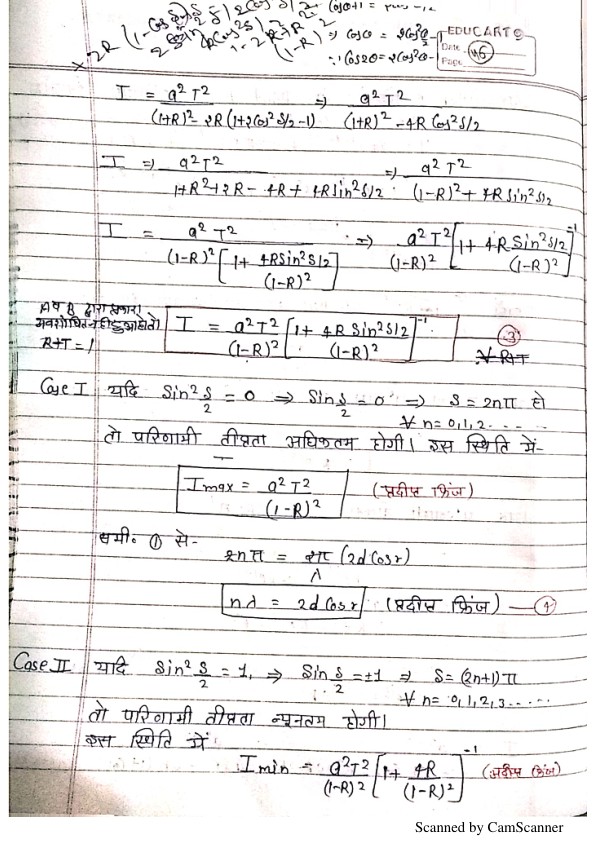 EDUCART
Date
Page 46
cosθ = 2cos²θ/2 - 1
∵ Cos2θ = 2Cos²θ-
I = a²T² / (1+R)² - 2R(1+2Cos²δ/2 - 1) ⇒ a²T² / (1+R)² - 4R Cos²δ/2
I ⇒ a²T² / 1+R²+2R - 4R + 4R Sin²δ/2 ⇒ a²T² / (1-R)² + 4R Sin²δ/2
I = a²T² / (1-R)² [1 + 4R Sin²δ/2 / (1-R)²] ⇒ a²T² / (1-R)² [1 + 4R Sin²δ/2 / (1-R)²]⁻¹
A व B द्वारा प्रकाश
अवशोषित नहीं
R+T = 1
I = a²T² / (1-R)² [1 + 4R Sin²δ/2 / (1-R)²]⁻¹ ③
Case I यदि Sin²δ/2 = 0 ⇒ Sin δ/2 = 0 ⇒ δ = 2nπ हो
∀ n = 0,1,2.....
तो परिणामी तीव्रता अधिकतम होगी। इस स्थिति में-
Imax = a²T² / (1-R)² (प्रदीप्त फ्रिंज)
समी० ① से-
2nπ = 2π/λ (2d Cos r)
nλ = 2d Cos r (प्रदीप्त फ्रिंज) — ④
Case II यदि Sin²δ/2 = 1, ⇒ Sin δ/2 = ±1 ⇒ δ = (2n+1)π
∀ n = 0,1,2,3.....
तो परिणामी तीव्रता न्यूनतम होगी।
इस स्थिति में
Imin = a²T² / (1-R)² [1 + 4R / (1-R)²]⁻¹ (अदीप्त फ्रिंज)
Scanned by CamScanner